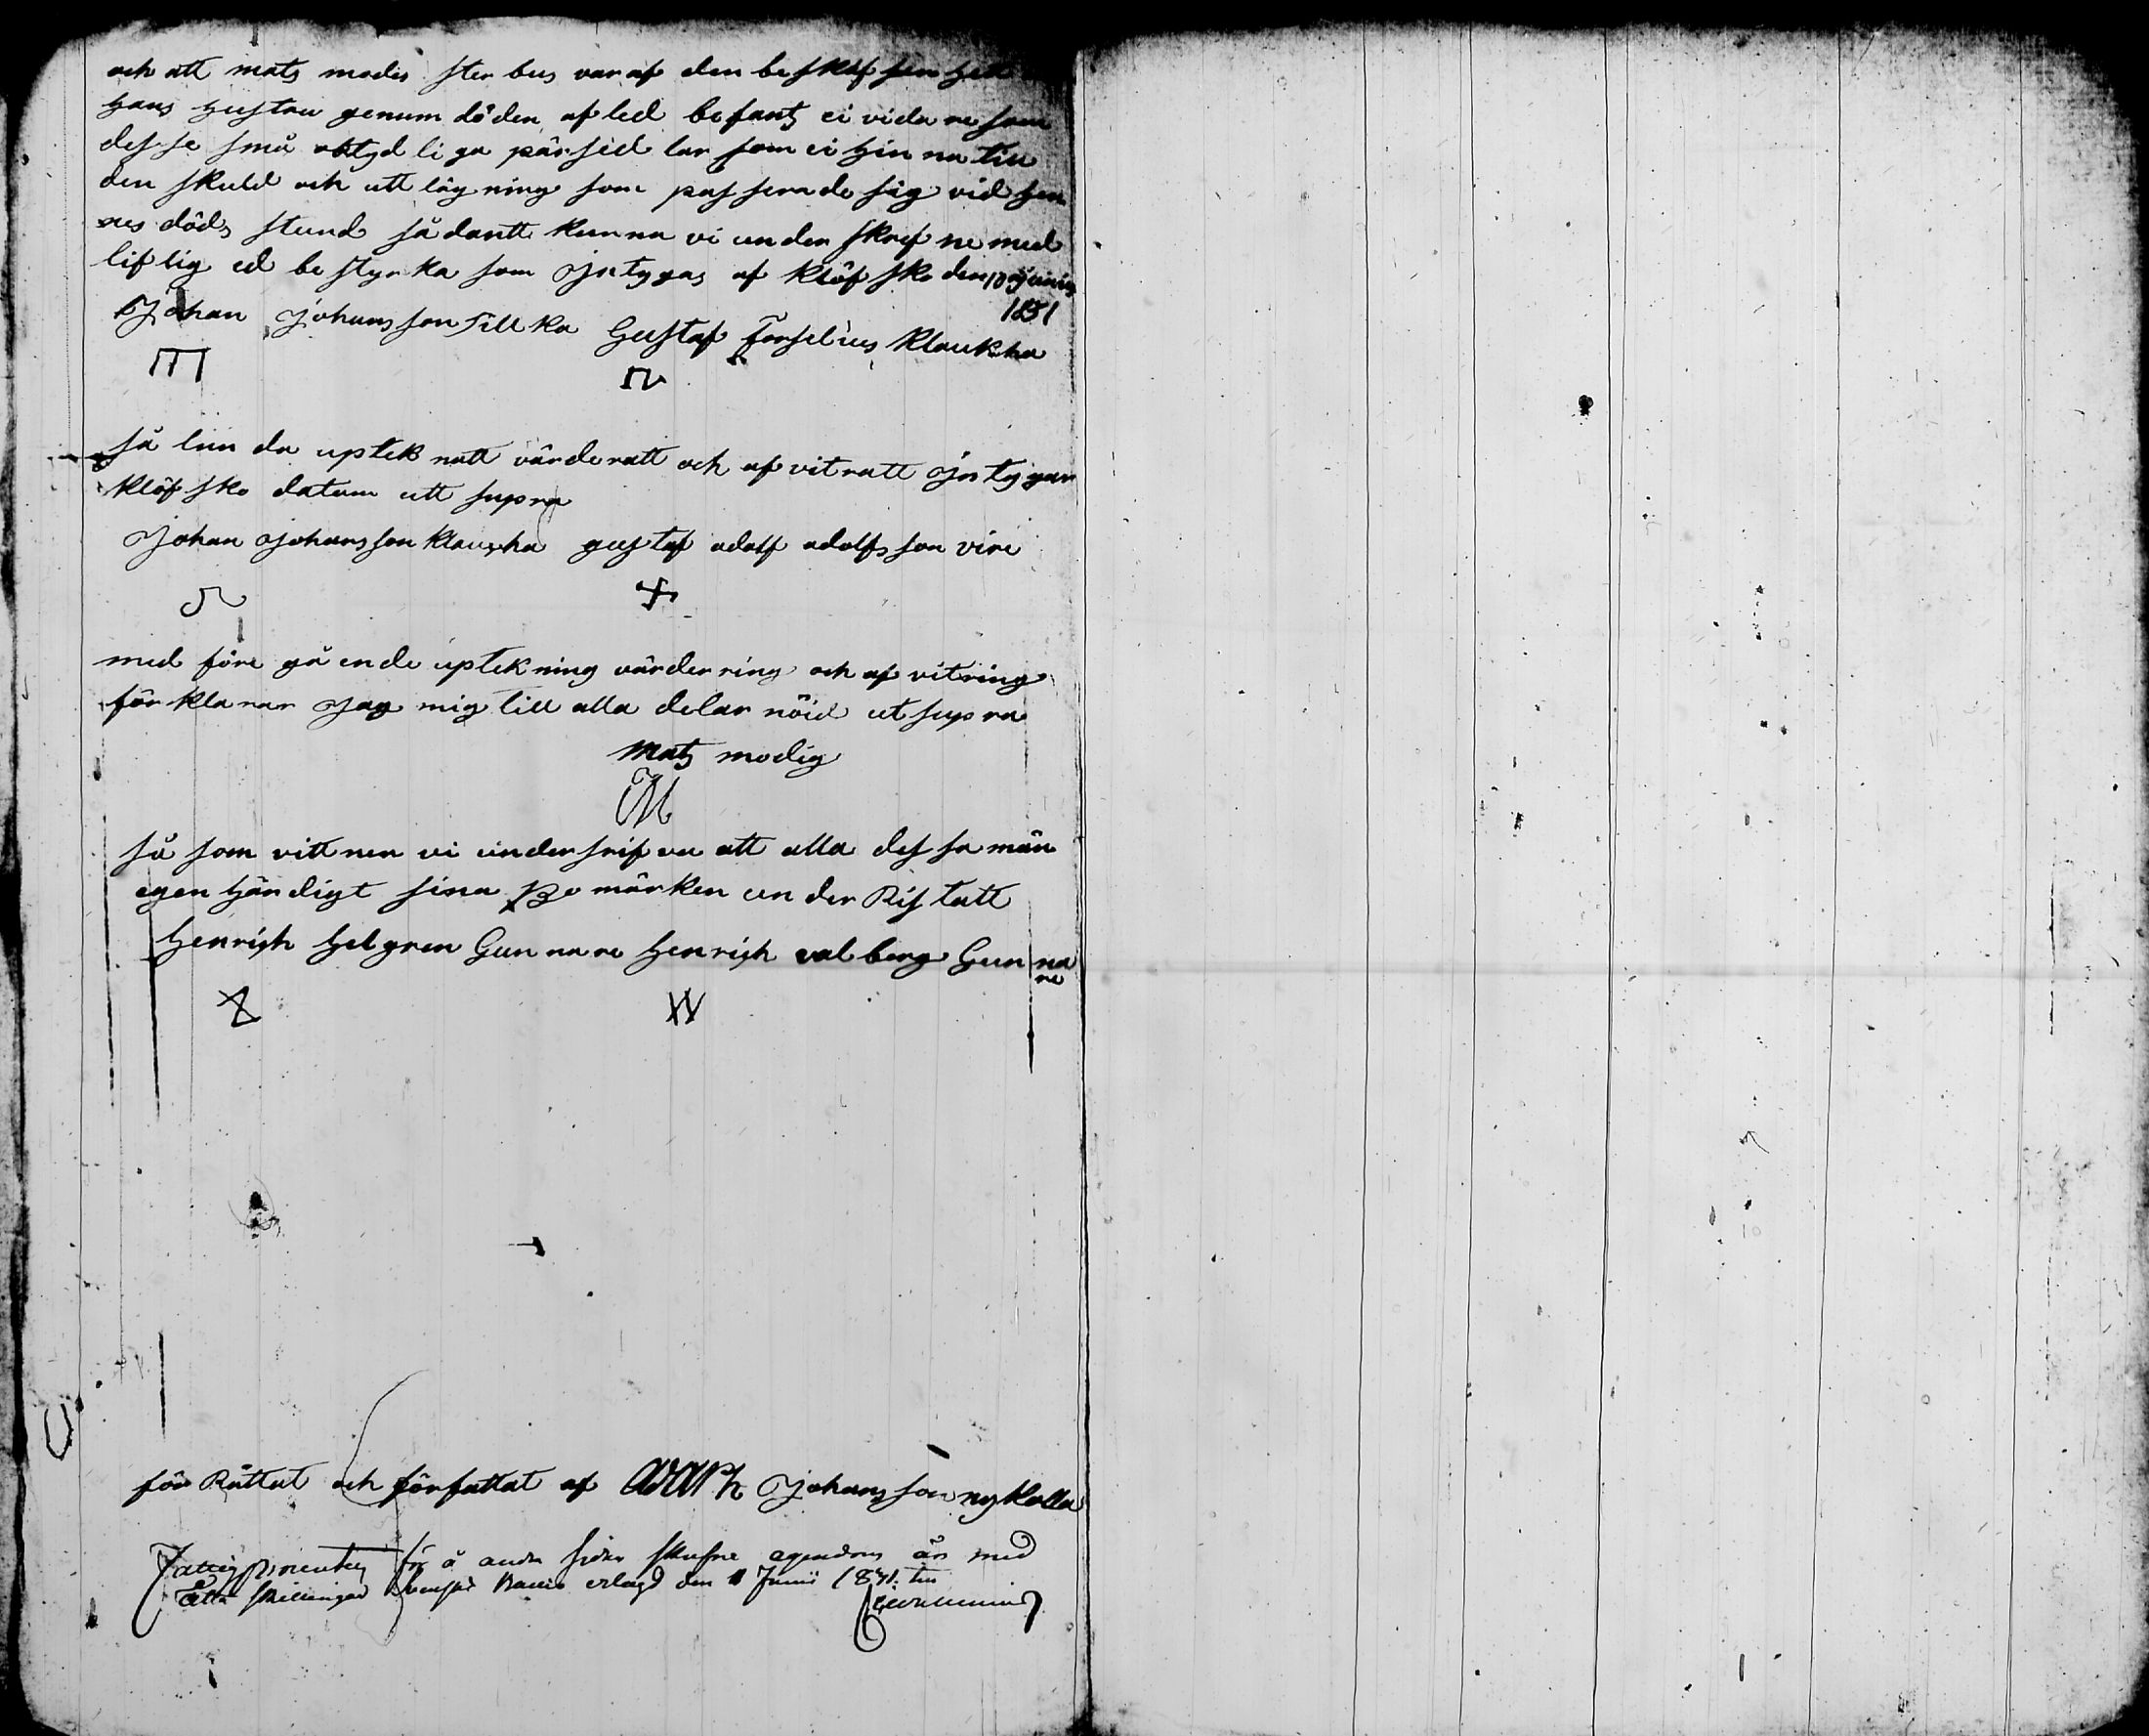 och att mats modis ster bus var af den beskaf fen het
hans hustru genum döden af led befantz ei vida re som
des se små obtyd li ga pärsed lar som ei hin na till
den skuld och utt läg ning som pas serade sig vid hen
nes döds stund så dantt kunna vi un der skref ne med
lif lig ed be styr ka som jn tygas af klöf sko den 10 junius
1831
Johan Johans son Till ka Gustaf Forselius Klaukka
så lun da uptek natt värde ratt och af vit ratt jn ty gar
klöf sko datum utt supra
Johan Johans son Klaukka gustaf adolf adolfs son vire
med före gå ende uptek ning värder ring och af vitring
för kla rar Jag mig till alla delar nöid ut supra
Matz modig
M
så som vitt nen vi under srif va att alla des sa män
egen händigt sina Bo märken un der Ris tatt
Henrich Helgren Gun nare Henrich val berg Gun na
re
för Rättat och författat af Johans son nykulla
för å andra sidan skrefne egendom är med
skillingar Banco erlagd den 11 Junii 1831.